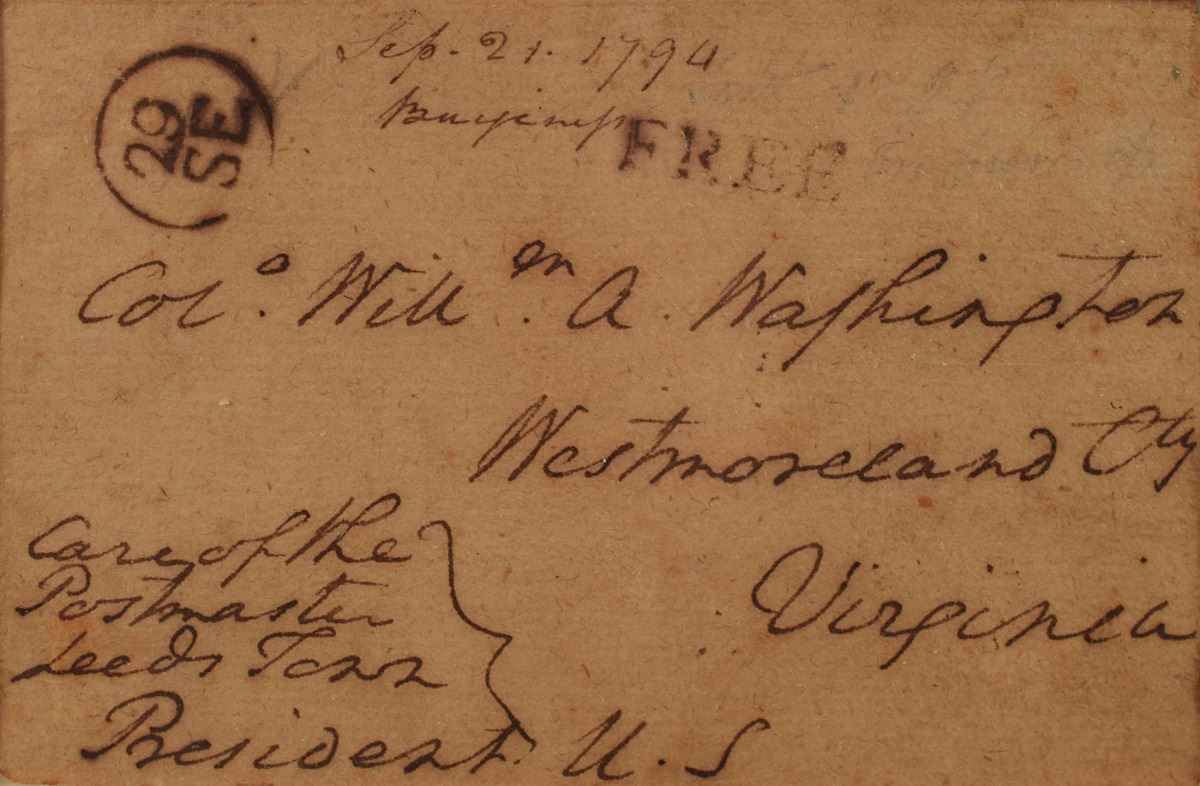 Sep. 21. 1794
29
SE
FREE
Colo. Willm. A. Washington
Westmoreland Cty
Virginia
Care of the
Postmaster
Leeds Town
President. U. S